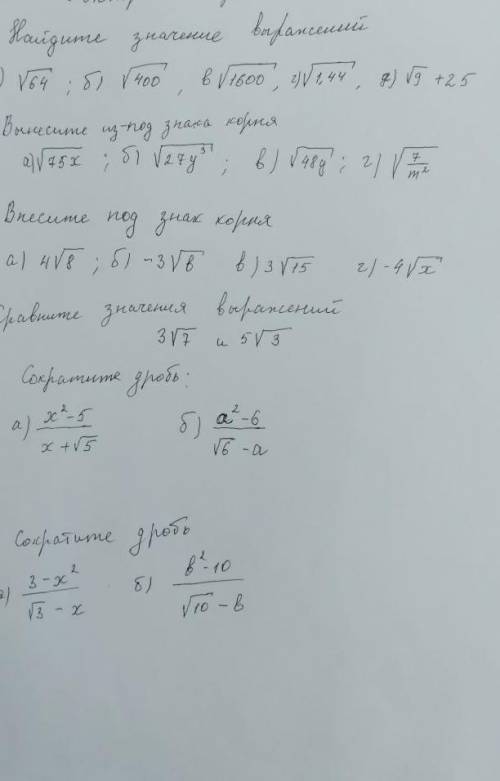 Найдите значение выражений
) √64 ; б) √400 , в √1600, г) √1,44 , д) √9 + 25
Вынесите из-под знака корня
а) √75x ; б) √27y³ ; в) √48y ; г) √(7/m²)
Внесите под знак корня
а) 4√8 ; б) -3√b в) 3√15 г) -4√x
Сравните значения выражений
3√7 и 5√3
Сократите дробь:
а) (x²-5)/(x+√5) б) (a²-6)/(√6-a)
Сократите дробь
а) (3-x²)/(√3-x) б) (b²-10)/(√10-b)